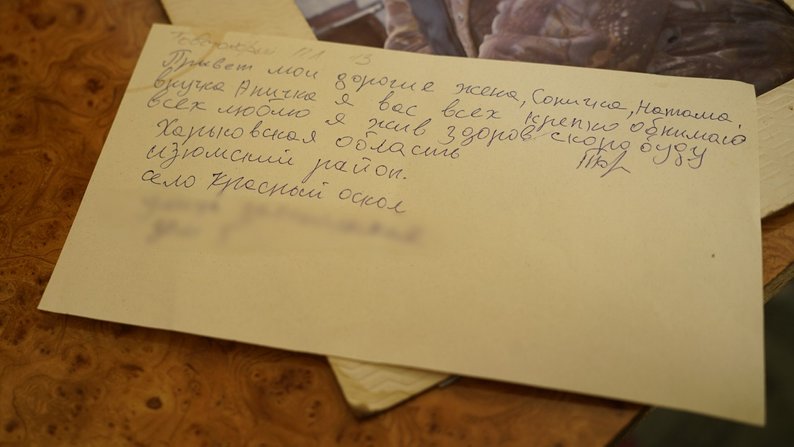 Привет мои дорогие жена, Соничка, Наташа,
внучка Аничка я вас всех крепко обнимаю
всех люблю я жив здоров скоро буду
Харьковская область
изюмский район.
село Красный оскол